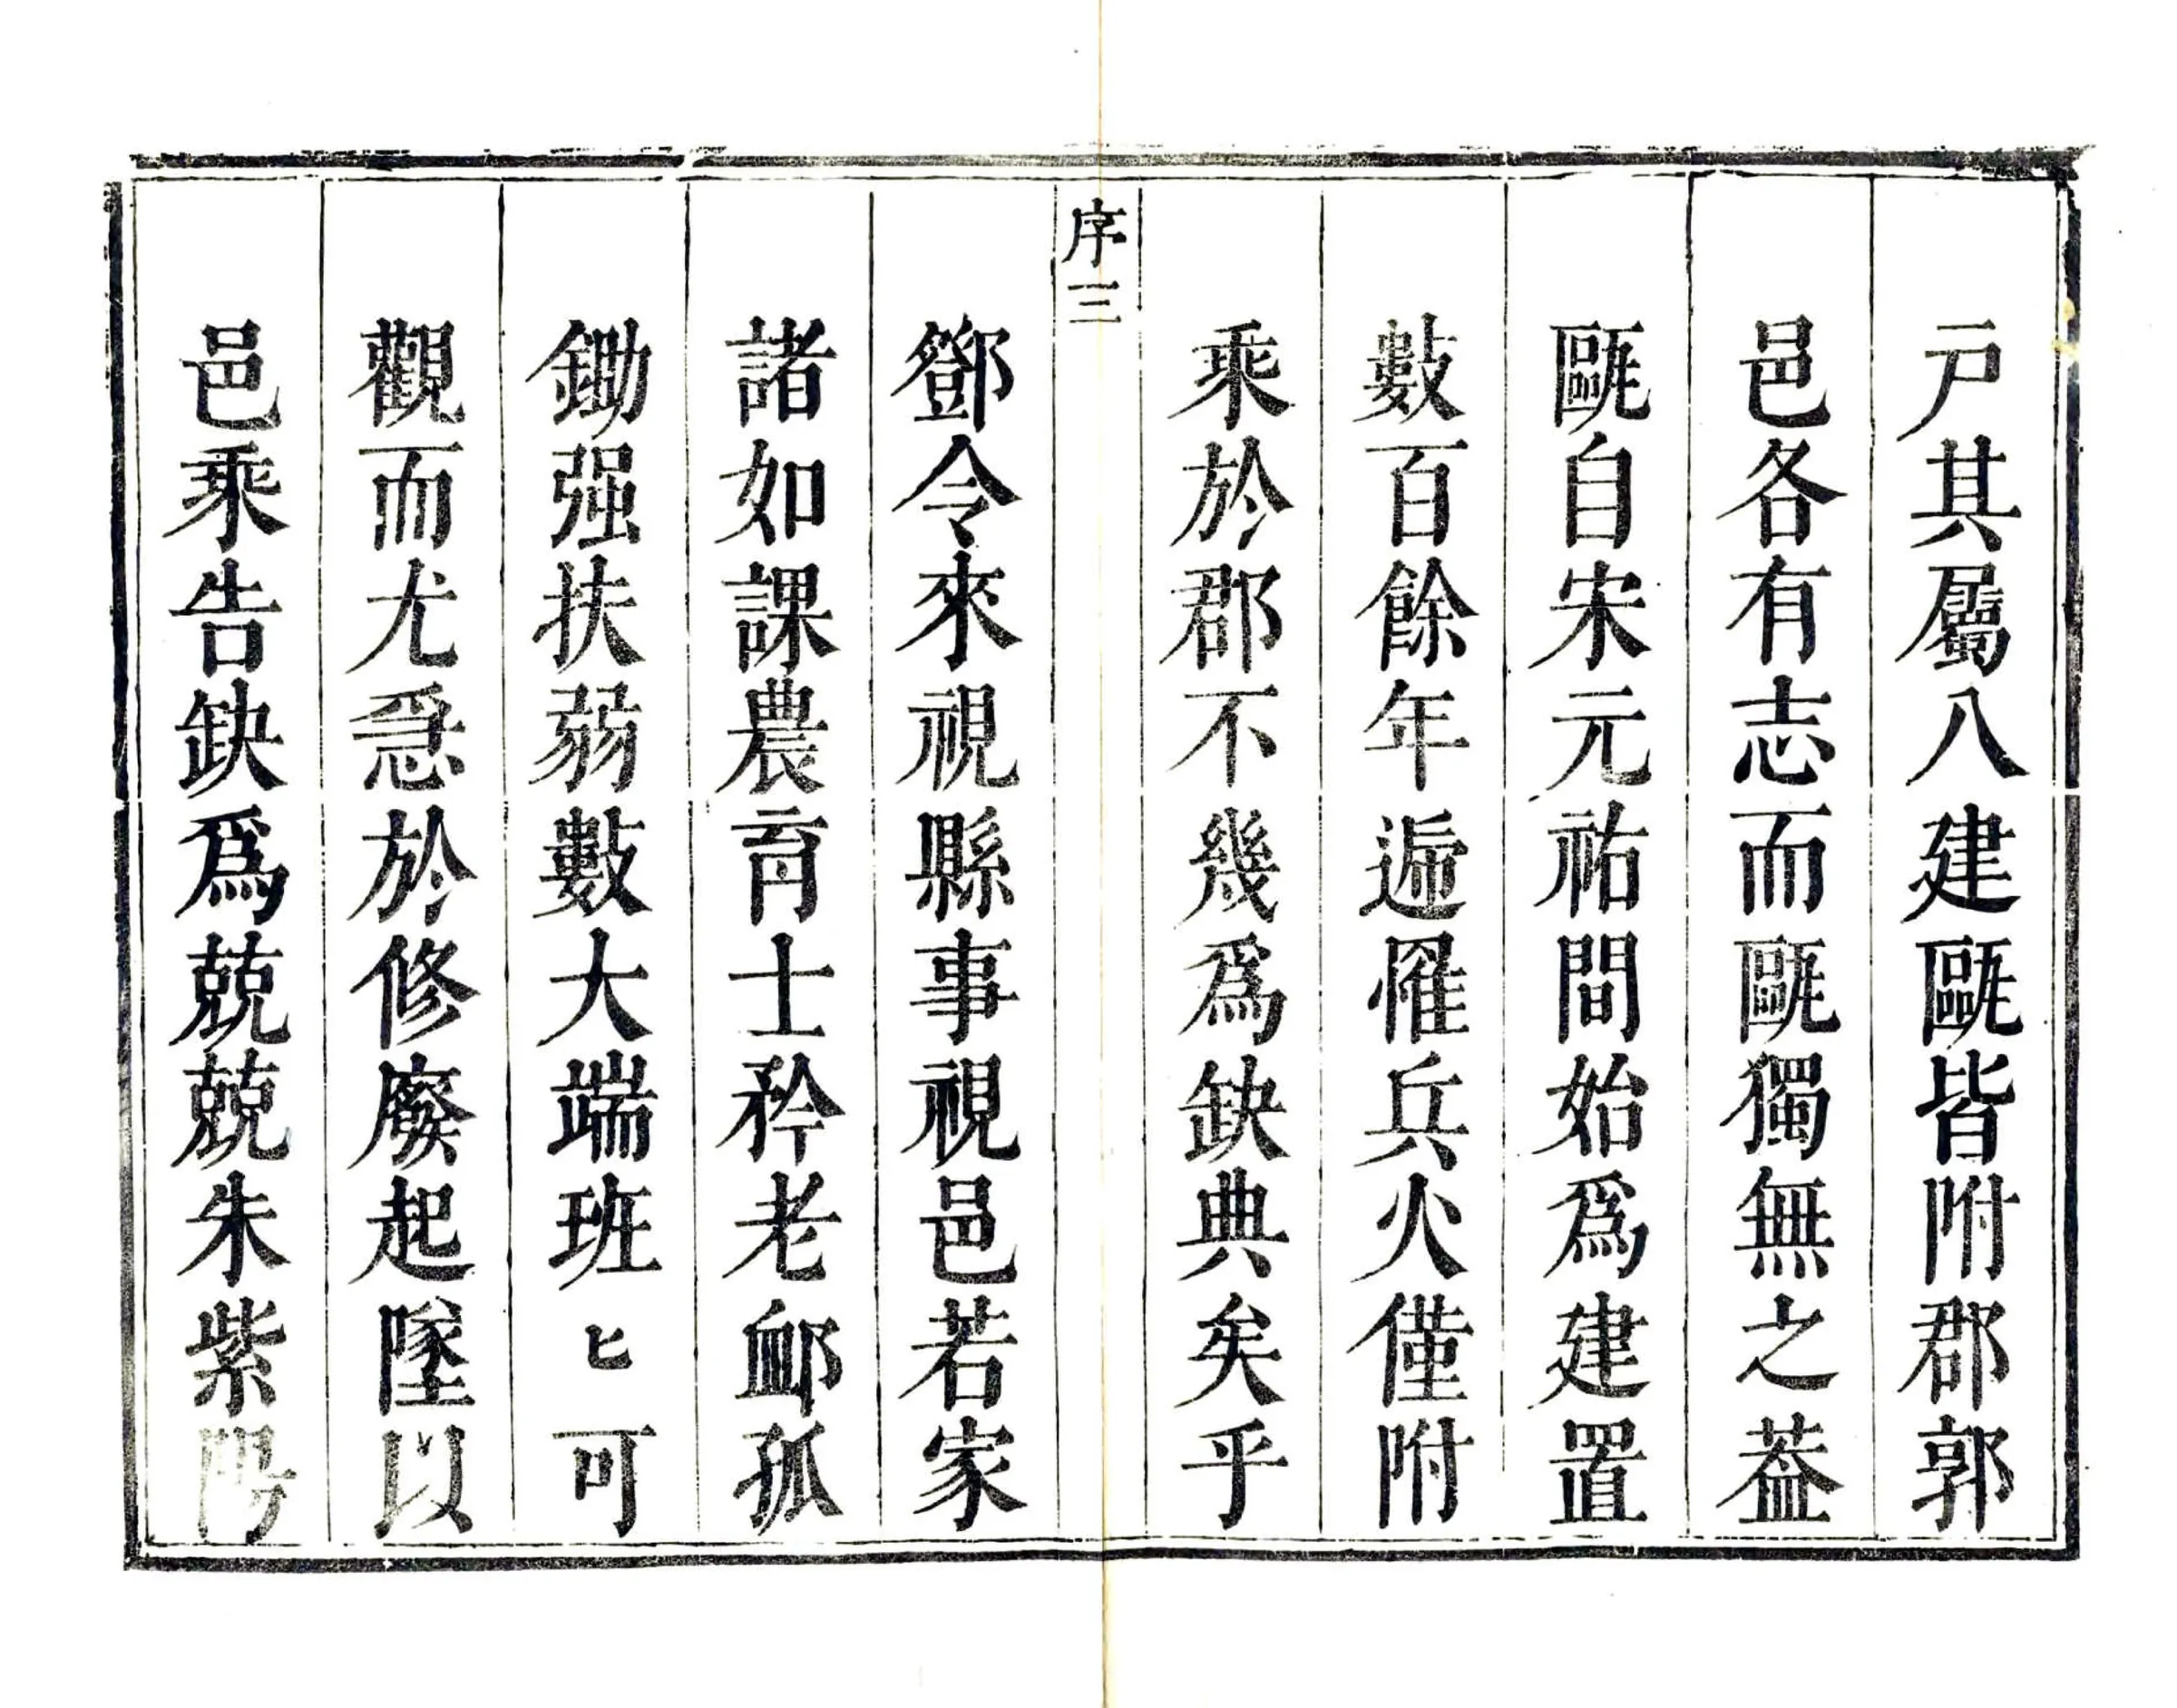 戸其屬八建甌皆附郡郭
邑各有志而甌獨無之葢
甌自宋元祐間始爲建置
數百餘年遍罹兵火僅附
乘於郡不幾爲缺典矣乎
序三
鄧令來視縣事視邑若家
諸如課農育士矜老䘏孤
鋤强扶弱數大端班匕可
觀而尤急於修廢起墜以
邑乘告缺爲兢兢朱紫陽